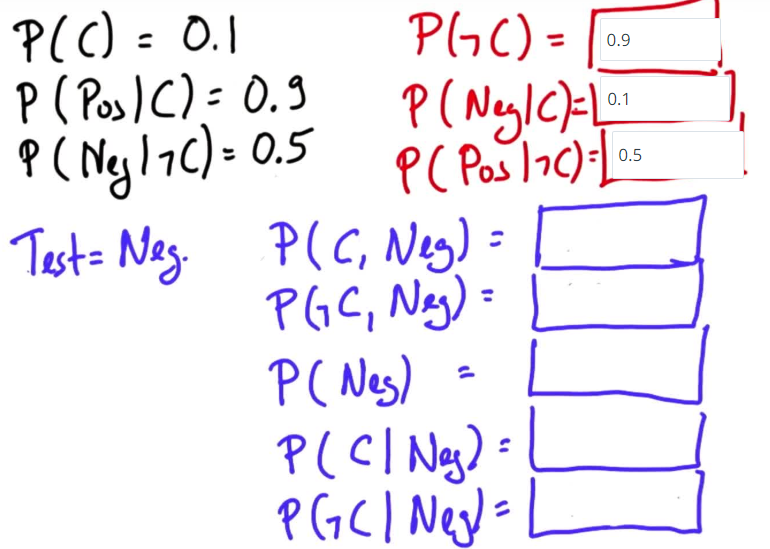 P(C) = 0.1
P(¬C) = 0.9
P(Pos|C) = 0.9
P(Neg|C)= 0.1
P(Neg|¬C) = 0.5
P(Pos|¬C)= 0.5
Test= Neg.
P(C, Neg) =
P(¬C, Neg) =
P(Neg) =
P(C|Neg) =
P(¬C|Neg) =